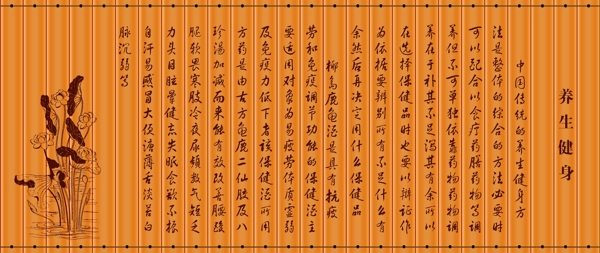 养生健身
中国传统的养生健身方
法是整体的综合的方法必要时
可以配合以食疗药膳药物等调
养但不可单独依靠药物药物调
养在于补其不足泻其有余所以
在选择保健品时也要以辩证作
为依据要辨别所有不足什么有
余然后再决定用什么保健品
椰岛鹿龟酒是具有抗疲
劳和免疫调节功能的保健酒主
要适用对象为易疲劳体质虚弱
及免疫力低下者该保健酒所用
方药是由古方龟鹿二仙胶及八
珍汤加减而来能有效改善腰酸
腿软畏寒肢冷夜尿频数气短乏
力头目眩晕健忘失眠食欲不振
自汗易感冒大便溏薄舌淡苔白
脉沉弱等